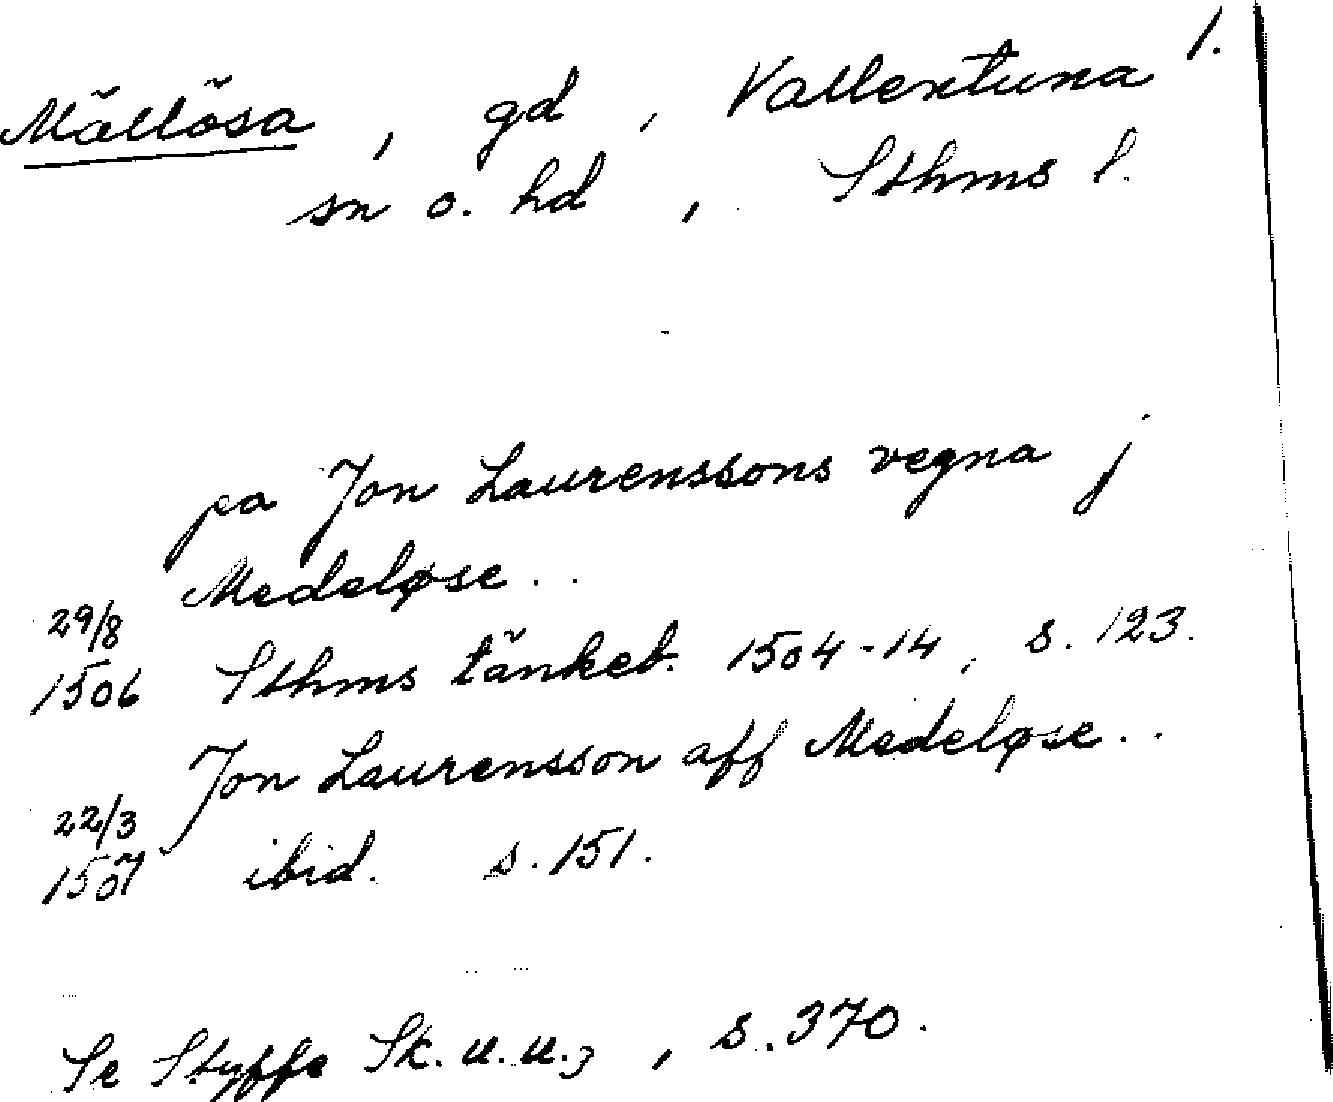 1.
Mällösa, gd, Vallentuna
sn o. hd, Sthms l.
pa Jon Laurenssons vegna j
Medeløse..
29/8
1506 Sthms tänkeb. 1504-14, s. 123.
Jon Laurensson aff Medeløse..
22/3
1507 ibid. s. 151.
Se Styffe Sk. u. u.3, s. 370.